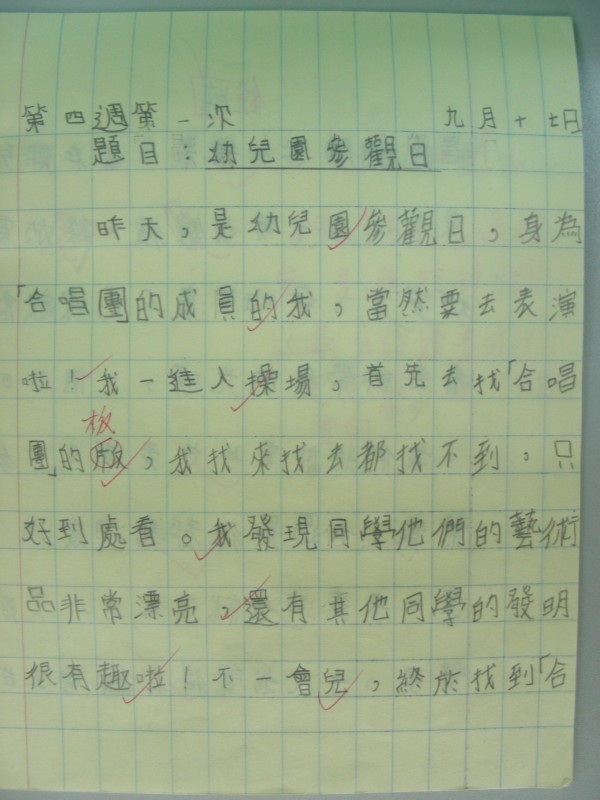 第四週第一次 九月十七日
題目：幼兒園參觀日
昨天，是幼兒園參觀日，身為
「合唱團」的成員的我，當然要去表演
啦！我一進入操場，首先去找「合唱
板
團」的版，我找來找去都找不到，只
好到處看。我發現同學他們的藝術
品非常漂亮，還有其他同學的發明
很有趣啦！不一會兒，終於找到「合